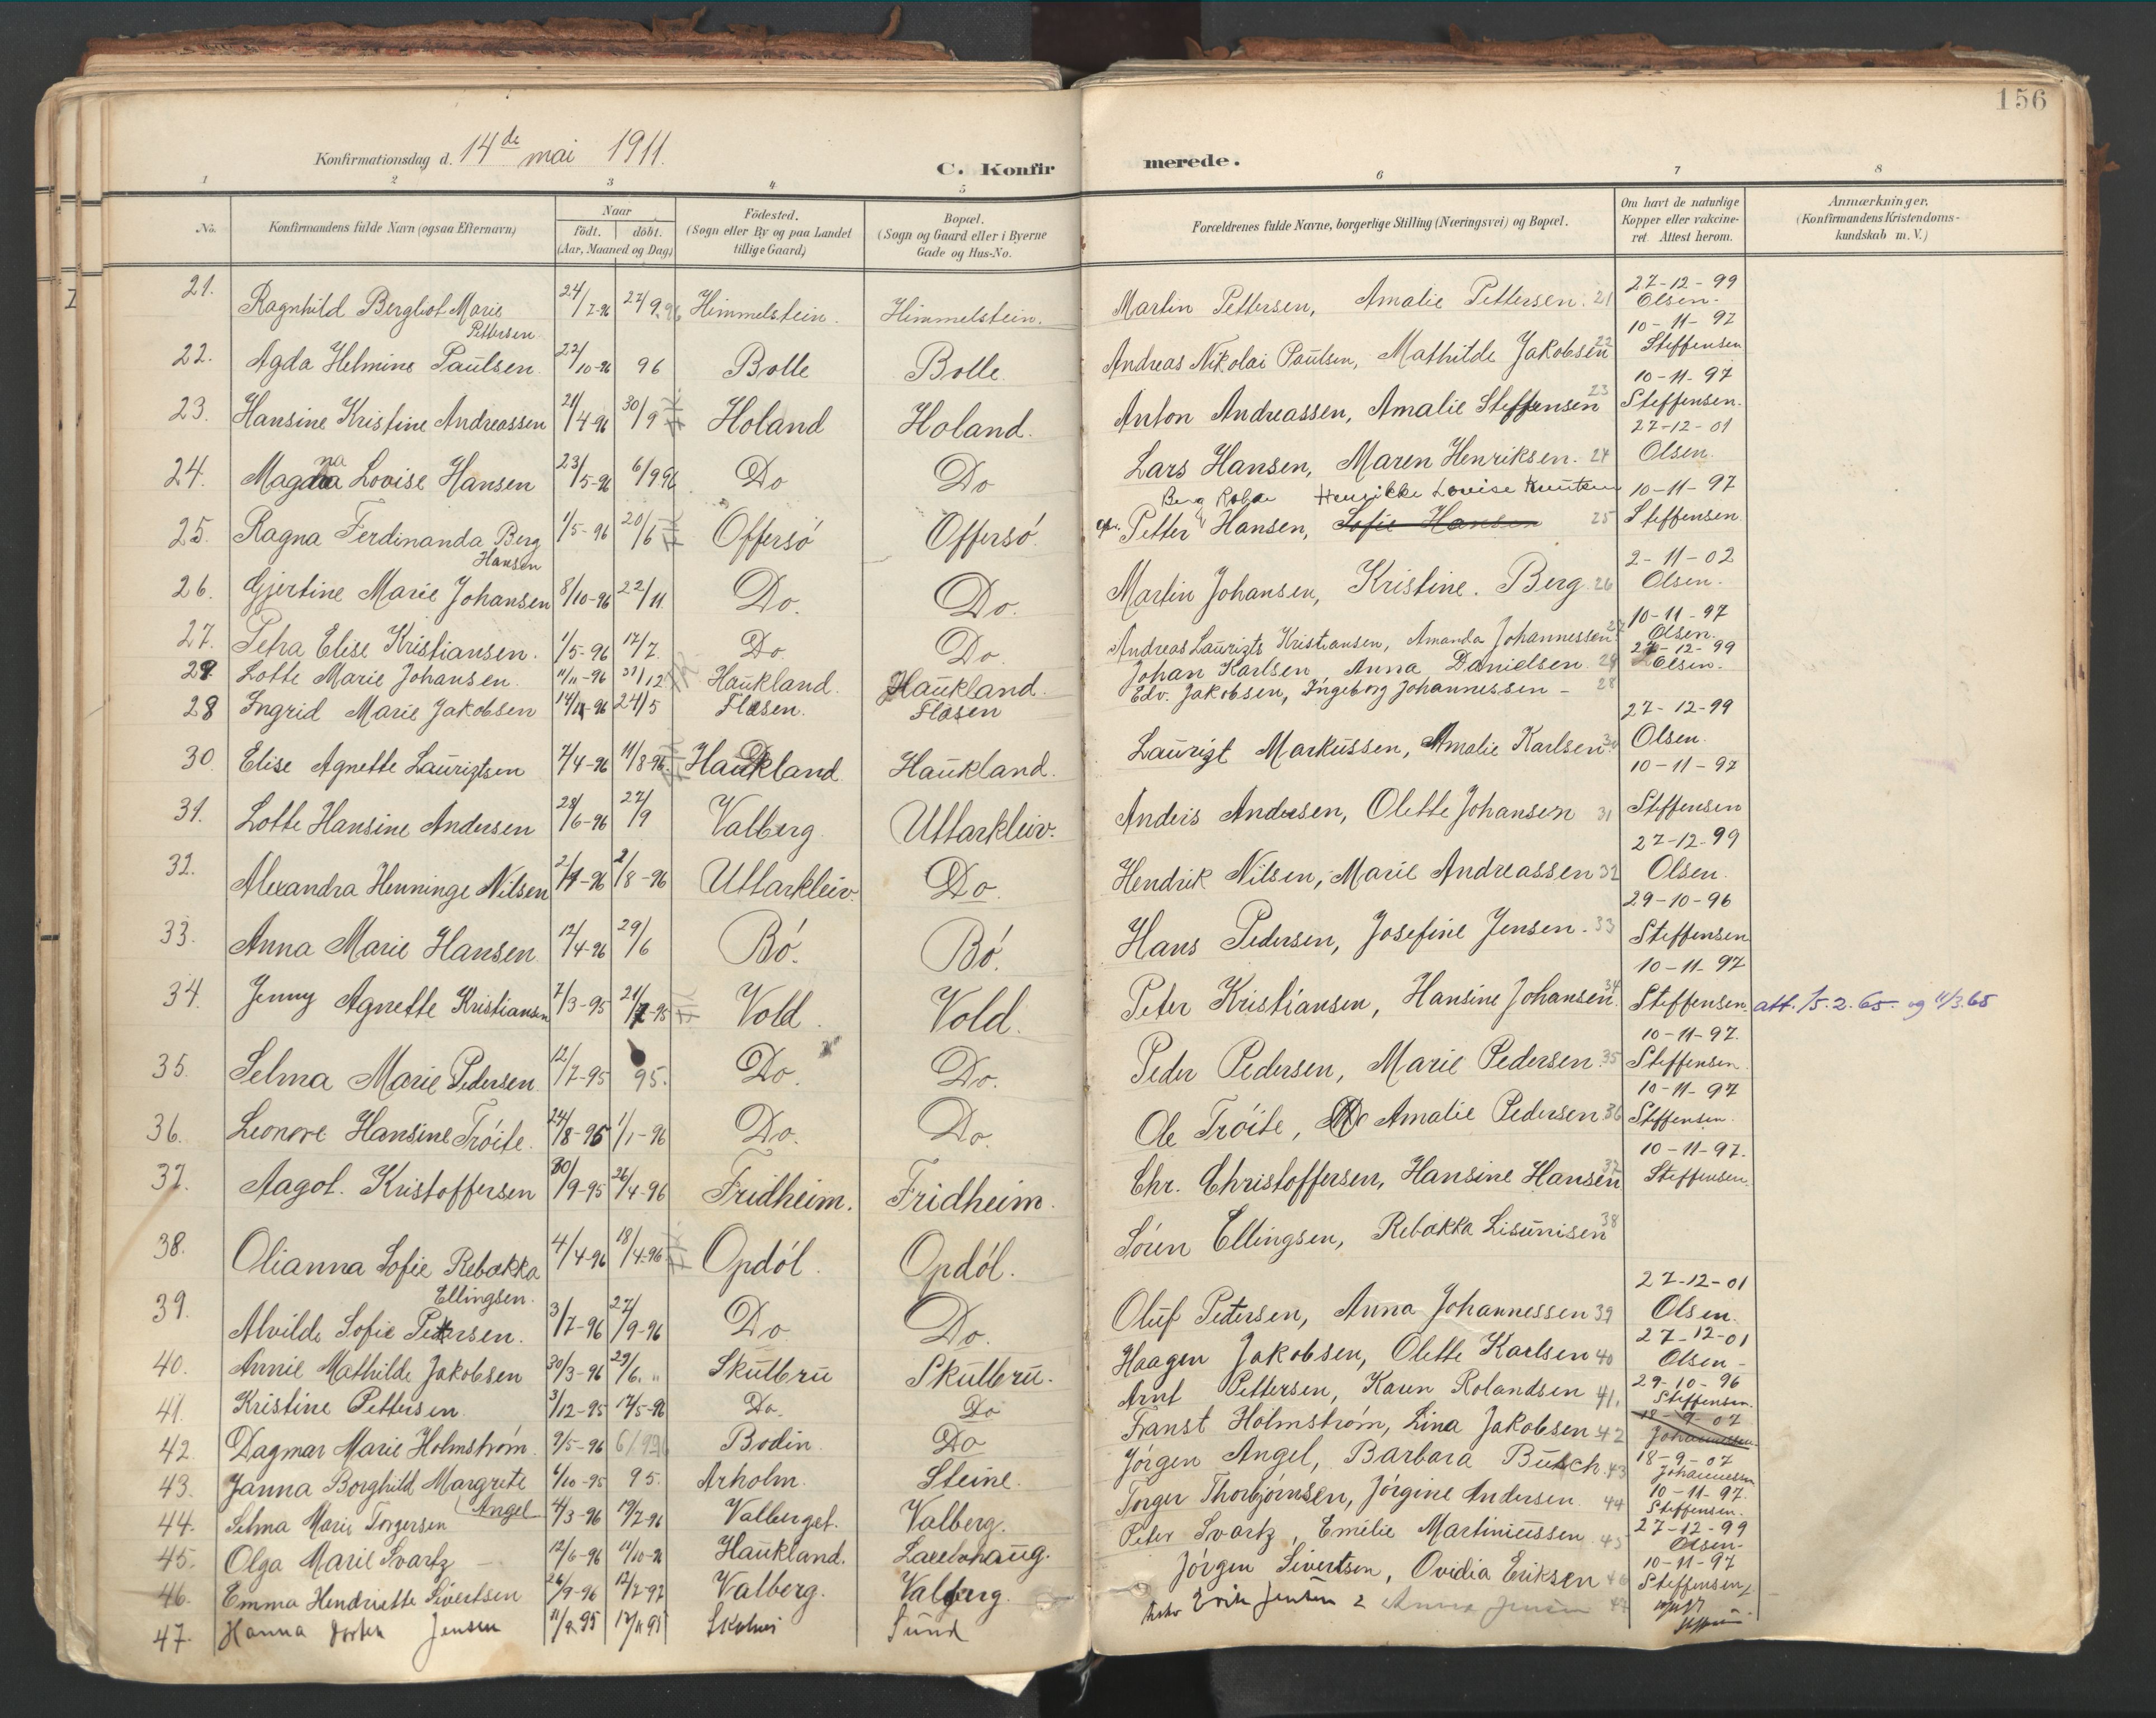 156
Konfirmationsdag d. 14de mai 1911.
C. Konfirmerede.
1 2 3 4 5 6 7 8
No. Konfirmandens fulde Navn (ogsaa Efternavn) Naar født. døbt. (Aar, Maaned og Dag) Fødested. (Sogn eller By og paa Landet tillige Gaard) Bopæl. (Sogn og Gaard eller i Byerne Gade og Hus-No. Forældrenes fulde Navne, borgerlige Stilling (Næringsvei) og Bopæl. Om havt de naturlige Kopper eller vakcineret. Attest herom. Anmærkninger. (Konfirmandens Kristendomskundskab m. V.)
21. Ragnhild Bergliot Marie Pettersen 24/7-96 27/9 96 Himmelstein. Himmelstein. Martin Pettersen, Amalie Pettersen. 21 27-12-99 Olsen.
22. Agda Helmine Paulsen. 22/10-96 96 Bolle Bolle. Andreas Nikolai Paulsen, Mathilde Jakobsen 22 10-11-97 Steffensen
23. Hansine Kristine Andreassen 21/4-96 30/9 Holand Holand. Anton Andreassen, Amalie Steffensen 23 10-11-97 Steffensen.
24. Magdna Lovise Hansen 23/5-96 6/9 96 Do Do Lars Hansen, Maren Henriksen. 24 27-12-01 Olsen.
25. Ragna Ferdinanda Berg Hansen 1/5-96 20/6 Offersó Offersó. Petter Hansen, Sofie Hansen Henrikke Lovise 25 10-11-97 Steffensen
26. Gjertine Marie Johansen 8/10-96 22/11 Do. Do. Martin Johansen, Kristine. Berg. 26 2-11-02 Olsen.
27. Petra Elise Kristiansen. 1/5-96 12/7 Do Do. Andreas Laurigts Kristiansen, Amanda Johannessen. 27 10-11-97 Olsen.
29 Lotte Marie Johansen. 11/11-96 31/12 Haukland. Haukland. Johan Karlsen, Anna Danielsen 29 27-12-99 Olsen.
28 Ingrid Marie Jakobsen 14/11-96 24/5 Flæsen. Flæsen Edv. Jakobsen, Ingeborg Johannessen - 28
30 Elise Agnette Laurigtsen 7/4-96 11/8-96. Haukland Haukland. Laurigt Markussen, Amalie Karlsen 30 27-12-99 Olsen.
31. Lotte Hansine Andersen 28/6-96 27/9 Valberg. Uttarkleiv. Anders Andersen, Olette Johansen 31 10-11-97 Steffensen
32. Alexandra Henninge Nilsen 2/7-96 2/8-96 Uttarkleiv. Do. Hendrik Nilsen, Marie Andreassen 32 27-12-99 Olsen.
33. Anna Marie Hansen 12/4-96 29/6 Bó. Bó. Hans Pedersen, Josefine Jensen. 33 29-10-96 Steffensen
34. Jenny Agnette Kristiansen 7/3-95 21/7-95 Vold. Vold. Peter Kristiansen, Hansine Johansen. 34 10-11-97 Steffensen. att. 15.2.65. og 11/3.65
35. Selma Marie Pedersen. 12/7-95 95. Do. Do. Peder Pedersen, Marie Pedersen. 35 10-11-97. Steffensen.
36. Leonore Hansine Tróite. 24/8-95 1/1-96 Do. Do. Ole Tróite, Amalie Pedersen 36 10-11-97 Steffensen.
37. Aagot. Kristoffersen 30/9-95 26/4-96 Fridheim. Fridheim. Chr. Christoffersen, Hansine Hansen 37 10-11-97. Steffensen.
38. Olianna Sofie Rebækka Ellingsen. 4/4-96 18/4-96 Opdól. Opdól. Sóren Ellingsen, Rebækka 38
39. Alvilde Sofie Petersen. 3/7-96 27/9-96 Do. Do. Oluf Petersen, Anna Johannessen 39 27-12-01 Olsen.
40. Annie Mathilde Jakobsen 30/3-96 29/6. " Skulbru Skulbru. Haagen Jakobsen, Olette Karlsen 40 27-12-01 Olsen -
41. Kristine Pettersen. 3/12-95 17/5-96 Do. Do Arnt Pettersen, Karen Rolandsen 41. 29-10-96 Steffensen.
42. Dagmar Marie Holmstróm. 9/5-96 6/9 96 Bodin. Do Franst Holmstróm, Lina Jakobsen 42 18-9-07 Johannessen.
43. Janna Borghild Margrete Angel 6/10-95 95. Arholm. Steine. Jórgen Angel, Barbara Busch. 43 18-9-07 Johannessen
44. Selma Marie Torgersen 4/3-96 19/7-96 Valberget. Valberg. Torger Thorbjórnsen, Jórgine Andersen. 44 10-11-97. Steffensen.
45. Olga Marie Svartz 12/6-96 11/10-96 Haukland. Peter Svartz, Emelie Martiniussen. 45 27-12-99 Olsen-
46. Emma Hendriette Sivertsen 26/9-96 12/7-97 Valberg. Valberg. Jórgen Sivertsen, Ovidia Eriksen 46 10-11-97 Steffensen,
47. Hanna Dortea Jensen 95 Sund Erik Jensen Anna Jensen 47